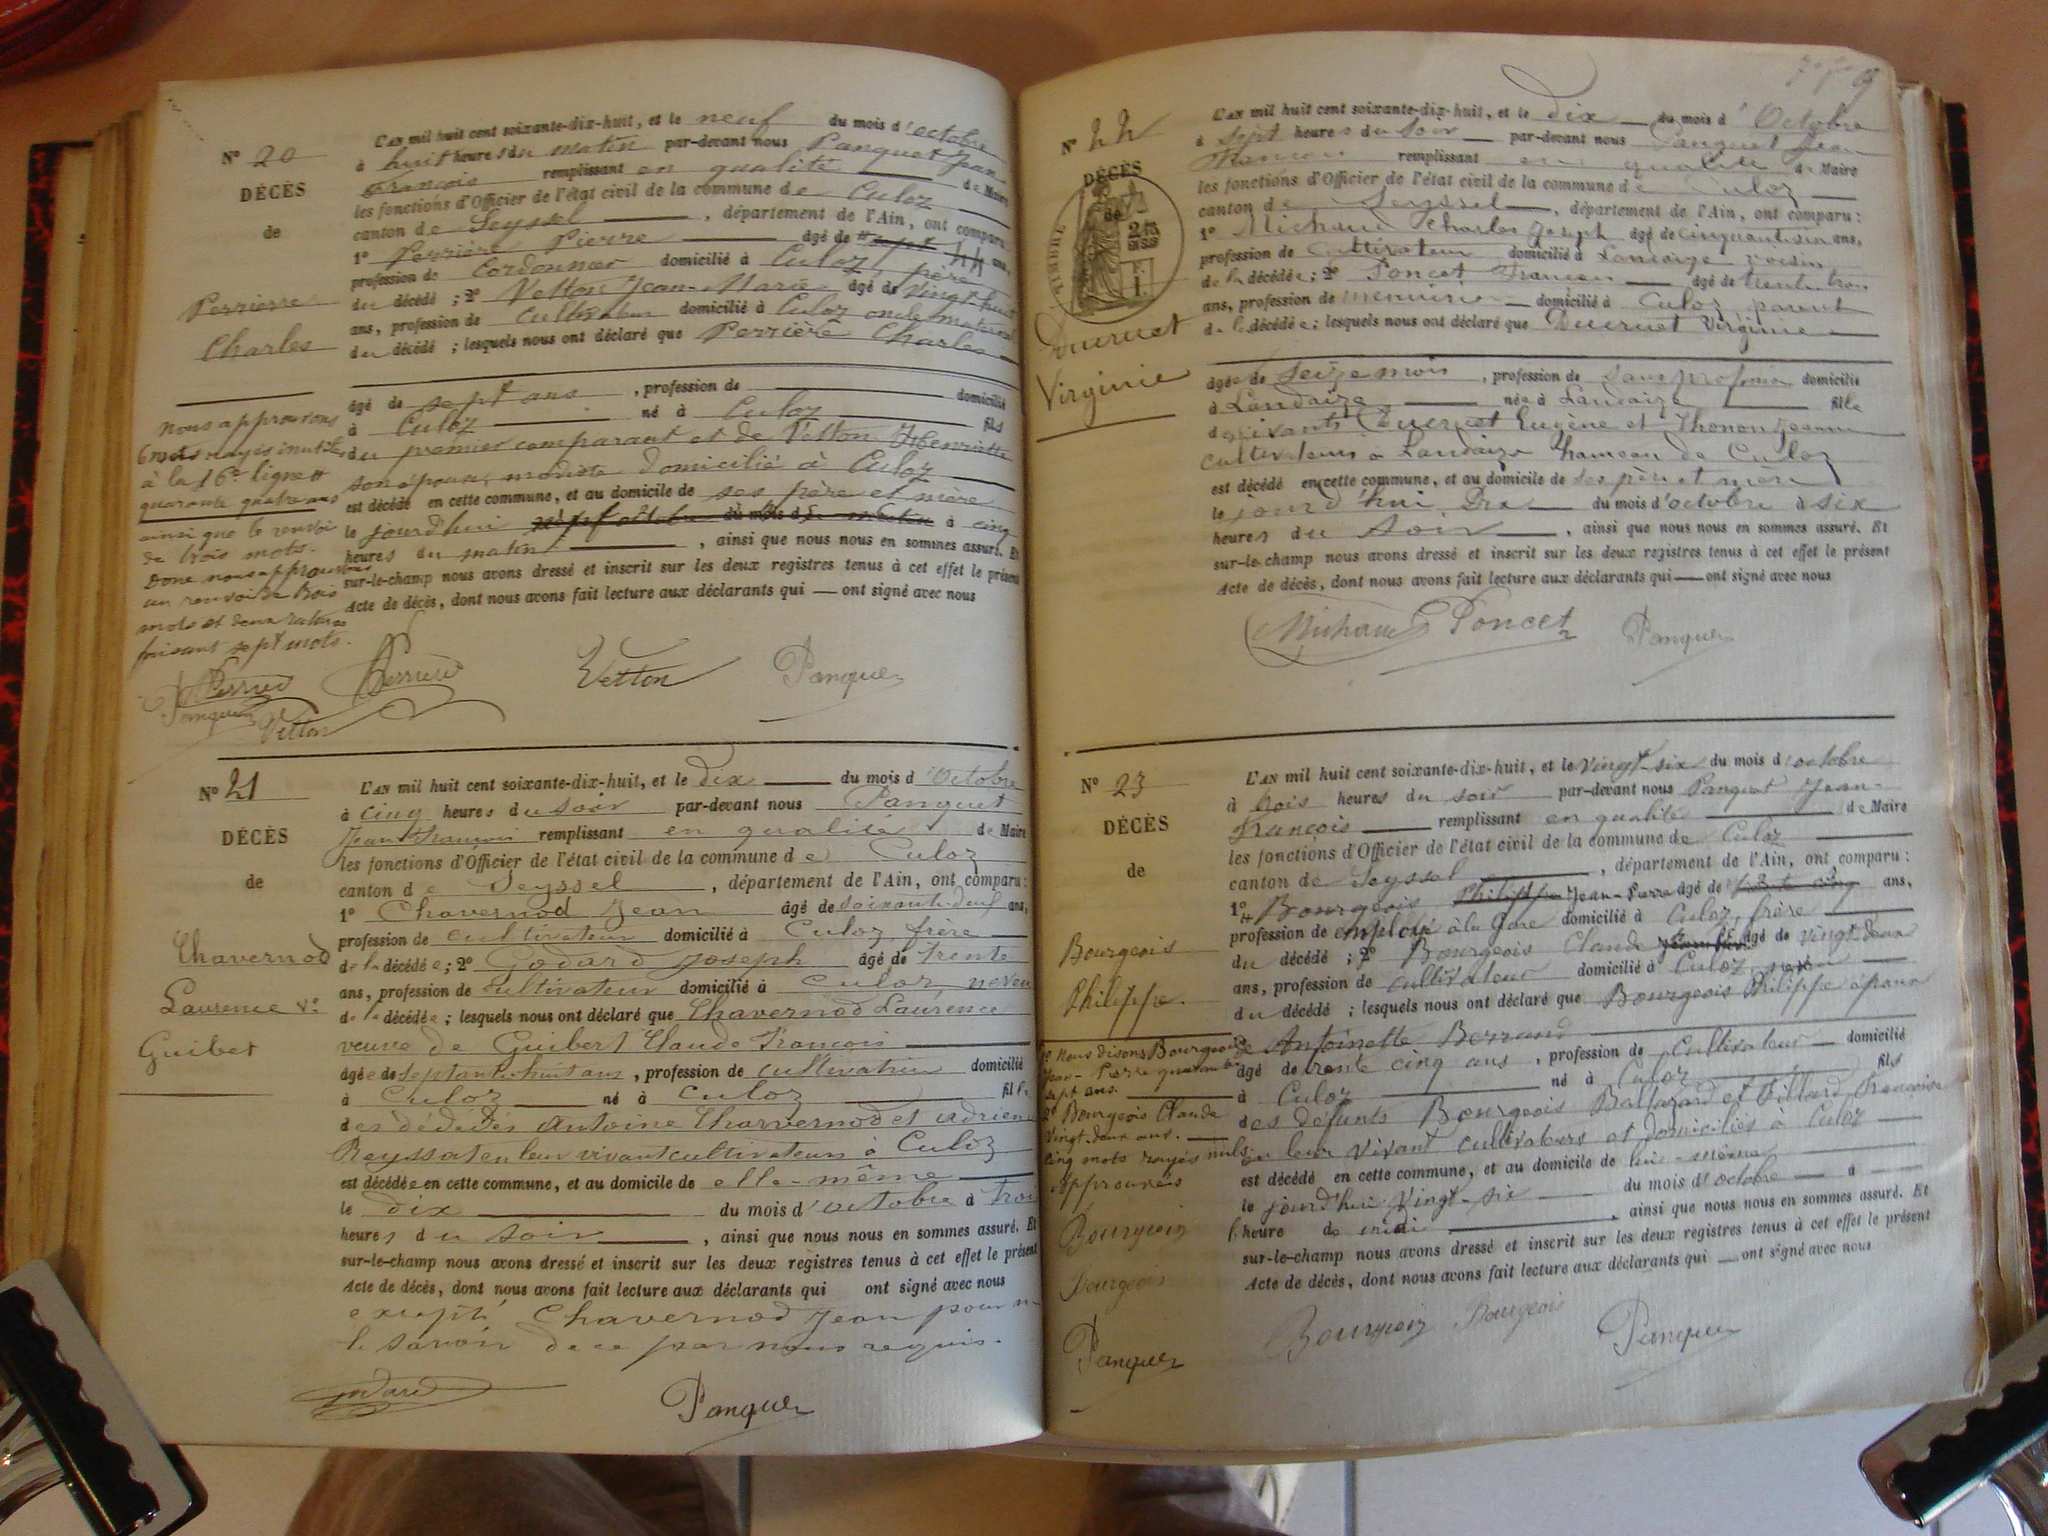 N° 20
DÉCÈS
de
Perrière
Charles
L'AN mil huit cent soixante-dix-huit, et le neuf du mois d'octobre
à huit heures du matin par-devant nous Panquet Jean
François remplissant en qualité de Maire
les fonctions d'Officier de l'état civil de la commune de Culoz
canton de Seyssel, département de l'Ain, ont comparu
1° Perrière Pierre âgé de 44 ans,
profession de Cordonnier domicilié à Culoz, père
du décédé ; 2° Vetton Jean-Marie âgé de vingt huit
ans, profession de cultivateur domicilié à Culoz oncle maternel
du décédé ; lesquels nous ont déclaré que Perrière Charles
âgé de sept ans, profession de domicilié
à Culoz né à Culoz fils
du premier comparant et de Vetton Henriette
son épouse, modiste domicilié à Culoz
est décédé en cette commune, et au domicile de ses père et mère
le jourd'hui du mois d à cinq
heures du matin, ainsi que nous nous en sommes assuré. Et
sur-le-champ nous avons dressé et inscrit sur les deux registres tenus à cet effet le présent
Acte de décès, dont nous avons fait lecture aux déclarants qui — ont signé avec nous
nous approuvons
6 mots rayés inutiles
à la 16e ligne #
quarante quatre ans
ainsi que le renvoi
de trois mots.
Donc nous approuvons
un renvoi de trois
mots et deux ratures
faisant sept mots.
Perrière Perrière Vetton Panquet
Panquet Vetton
N° 21
DÉCÈS
de
Chavernod
Laurence Ve
Guibet
L'AN mil huit cent soixante-dix-huit, et le dix du mois d'Octobre
à cinq heures du soir par-devant nous Panquet
Jean François remplissant en qualité de Maire
les fonctions d'Officier de l'état civil de la commune de Culoz
canton de Seyssel, département de l'Ain, ont comparu :
1° Chavernod Jean âgé de soixante-neuf ans,
profession de cultivateur domicilié à Culoz, frère
de la décédée ; 2° Godard Joseph âgé de trente
ans, profession de cultivateur domicilié à Culoz, neveu
de la décédée ; lesquels nous ont déclaré que Chavernod Laurence
veuve de Guibert Claude François
âgée de septante-huit ans, profession de cultivatrice domicilié
à Culoz né à Culoz fille
des décédés Antoine Charvernod et Adrienne
Reyssat en leur vivant cultivateurs à Culoz
est décédée en cette commune, et au domicile de elle-même
le dix du mois d'octobre à trois
heures du soir, ainsi que nous nous en sommes assuré. Et
sur-le-champ nous avons dressé et inscrit sur les deux registres tenus à cet effet le présent
Acte de décès, dont nous avons fait lecture aux déclarants qui ont signé avec nous
excepté Chavernod Jean pour ne
le savoir de ce par nous requis.
Godard Panquet
N° 22
DÉCÈS
de
TIMBRE
Ducruet
Virginie
L'AN mil huit cent soixante-dix-huit, et le dix du mois d'Octobre
à sept heures du soir par-devant nous Panquet Jean
François remplissant en qualité de Maire
les fonctions d'Officier de l'état civil de la commune de Culoz
canton de Seyssel, département de l'Ain, ont comparu :
1° Michaud Charles Joseph âgé de cinquante six ans,
profession de Cultivateur domicilié à Landaize voisin
de la décédée ; 2° Poncet François âgé de trente trois
ans, profession de menuisier domicilié à Culoz parent
de la décédée ; lesquels nous ont déclaré que Ducruet Virginie
âgée de seize mois, profession de sans profession domicilié
à Landaize née à Landaize fille
des vivants Ducruet Eugène et Thonon Jeanne
cultivateurs à Landaize hameau de Culoz
est décédé en cette commune, et au domicile de ses père et mère
le jourd'hui Dix du mois d'octobre à six
heures du soir, ainsi que nous nous en sommes assuré. Et
sur-le-champ nous avons dressé et inscrit sur les deux registres tenus à cet effet le présent
Acte de décès, dont nous avons fait lecture aux déclarants qui — ont signé avec nous
Michaud Poncet Panquet
N° 23
DÉCÈS
de
Bourgeois
Philippe.
L'AN mil huit cent soixante-dix-huit, et le vingt-six du mois d'octobre
à trois heures du soir par-devant nous Panquet Jean-
François remplissant en qualité de Maire
les fonctions d'Officier de l'état civil de la commune de Culoz
canton de Seyssel, département de l'Ain, ont comparu :
1° Bourgeois Philippe Jean-Pierre âgé de trente cinq ans,
profession de employé à la Gare domicilié à Culoz, frère
du décédé ; 2° Bourgeois Claude âgé de vingt-deux
ans, profession de cultivateur domicilié à Culoz neveu
du décédé ; lesquels nous ont déclaré que Bourgeois Philippe époux
de Antoinette Berrand
âgé de trente cinq ans, profession de Cultivateur domicilié
à Culoz né à Culoz fils
des défunts Bourgeois Baltazard et Billard Françoise
en leur vivant cultivateurs et domiciliés à Culoz
est décédé en cette commune, et au domicile de lui-même
le jourd'hui Vingt-six du mois d'octobre à
heure de midi, ainsi que nous nous en sommes assuré. Et
sur-le-champ nous avons dressé et inscrit sur les deux registres tenus à cet effet le présent
Acte de décès, dont nous avons fait lecture aux déclarants qui — ont signé avec nous
1° Nous disons Bourgeois
Jean-Pierre quarante
sept ans.
2° Bourgeois Claude
vingt-deux ans.
cinq mots rayés nuls
Approuvés
Bourgeois
Bourgeois
Panquet
Bourgeois Bourgeois Panquet